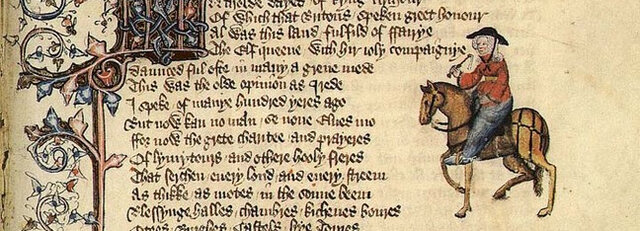 Of which that Britons speken greet honour
Al was this land fulfild of ffairye
The Elf queene with hir ioly compaignye
Daunced ful ofte in many a grene mede
This was the olde opinion as I rede
I speke of manye hundred yeres ago
But now kan no man se none Elues mo
ffor now the grete charitee and prayeres
Of lymytours and othere hooly freres
That serchen euery lond and euery streem
As thikke as motes in the sonne beem
Blessynge halles chambres kichenes boures
Citees Burghes Castels hye Toures